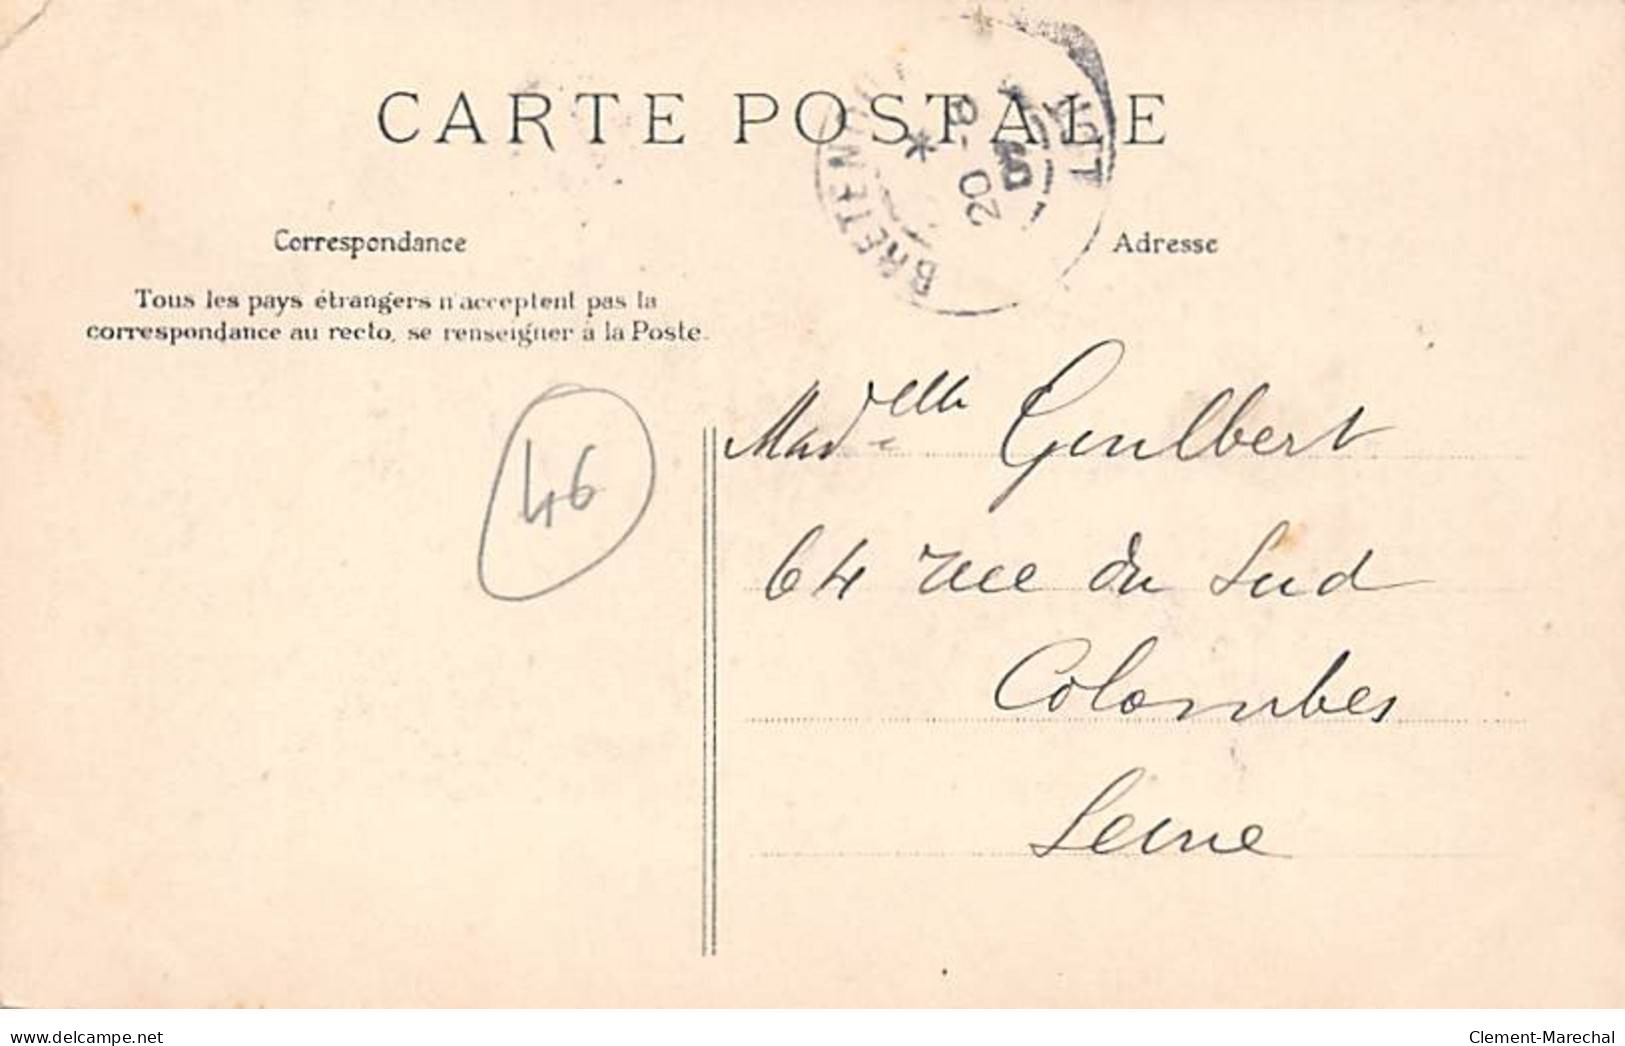 CARTE POSTALE
BRETENOUX
LOT
20
Correspondance
Adresse
Tous les pays étrangers n'acceptent pas la
correspondance au recto, se renseigner à la Poste.
46
Madelle Guilbert
64 rue du Sud
Colombes
Seine
delcampe.net
Clement-Marechal